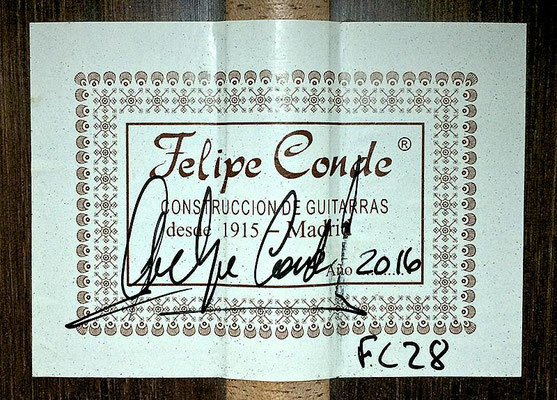 Felipe Conde ®
CONSTRUCCION DE GUITARRAS
desde 1915 – Madrid
Felipe Conde
Año 2016
F.C 28